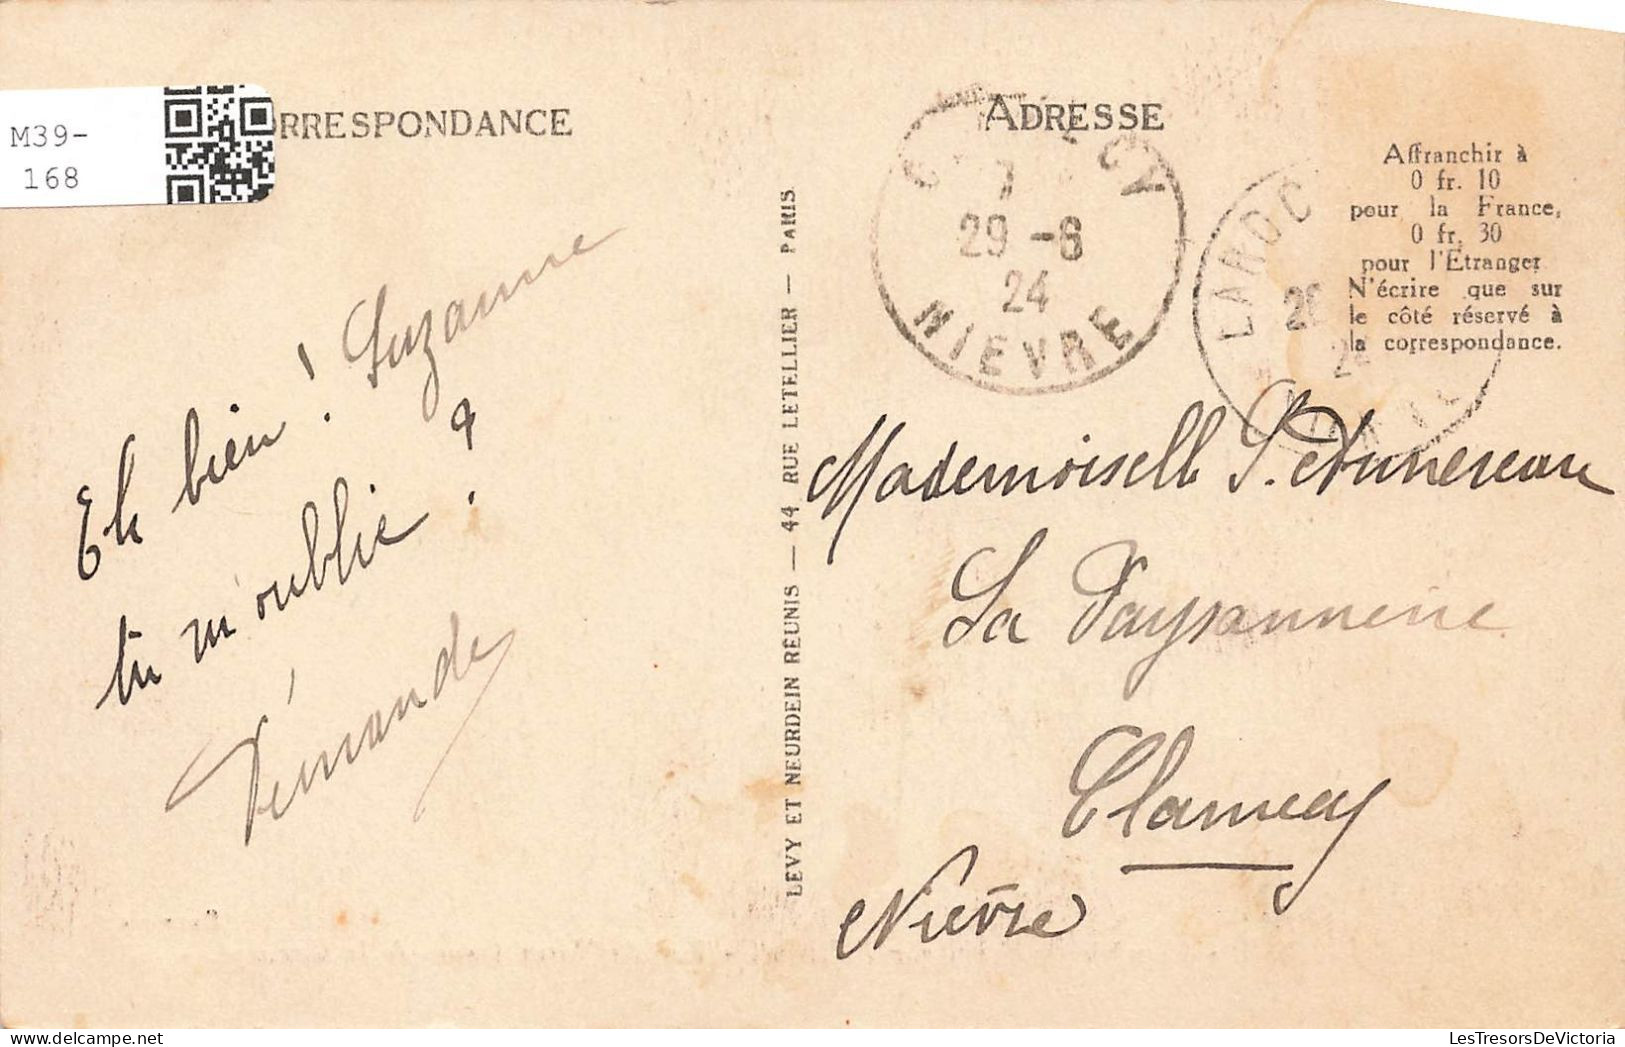 M39-
168
CORRESPONDANCE
Eh bien ! Suzanne
tu m'oublie ?
Fernande
LEVY ET NEURDEIN RÉUNIS — 44 RUE LETELLIER — PARIS
ADRESSE
29 -6
24
NIEVRE
LAROC
Affranchir à
0 fr. 10
pour la France,
0 fr. 30
pour l'Etranger
N'écrire que sur
le côté réservé à
la correspondance.
Mademoiselle S.
La
Clamecy
Nièvre
LesTresorsDeVictoria.com